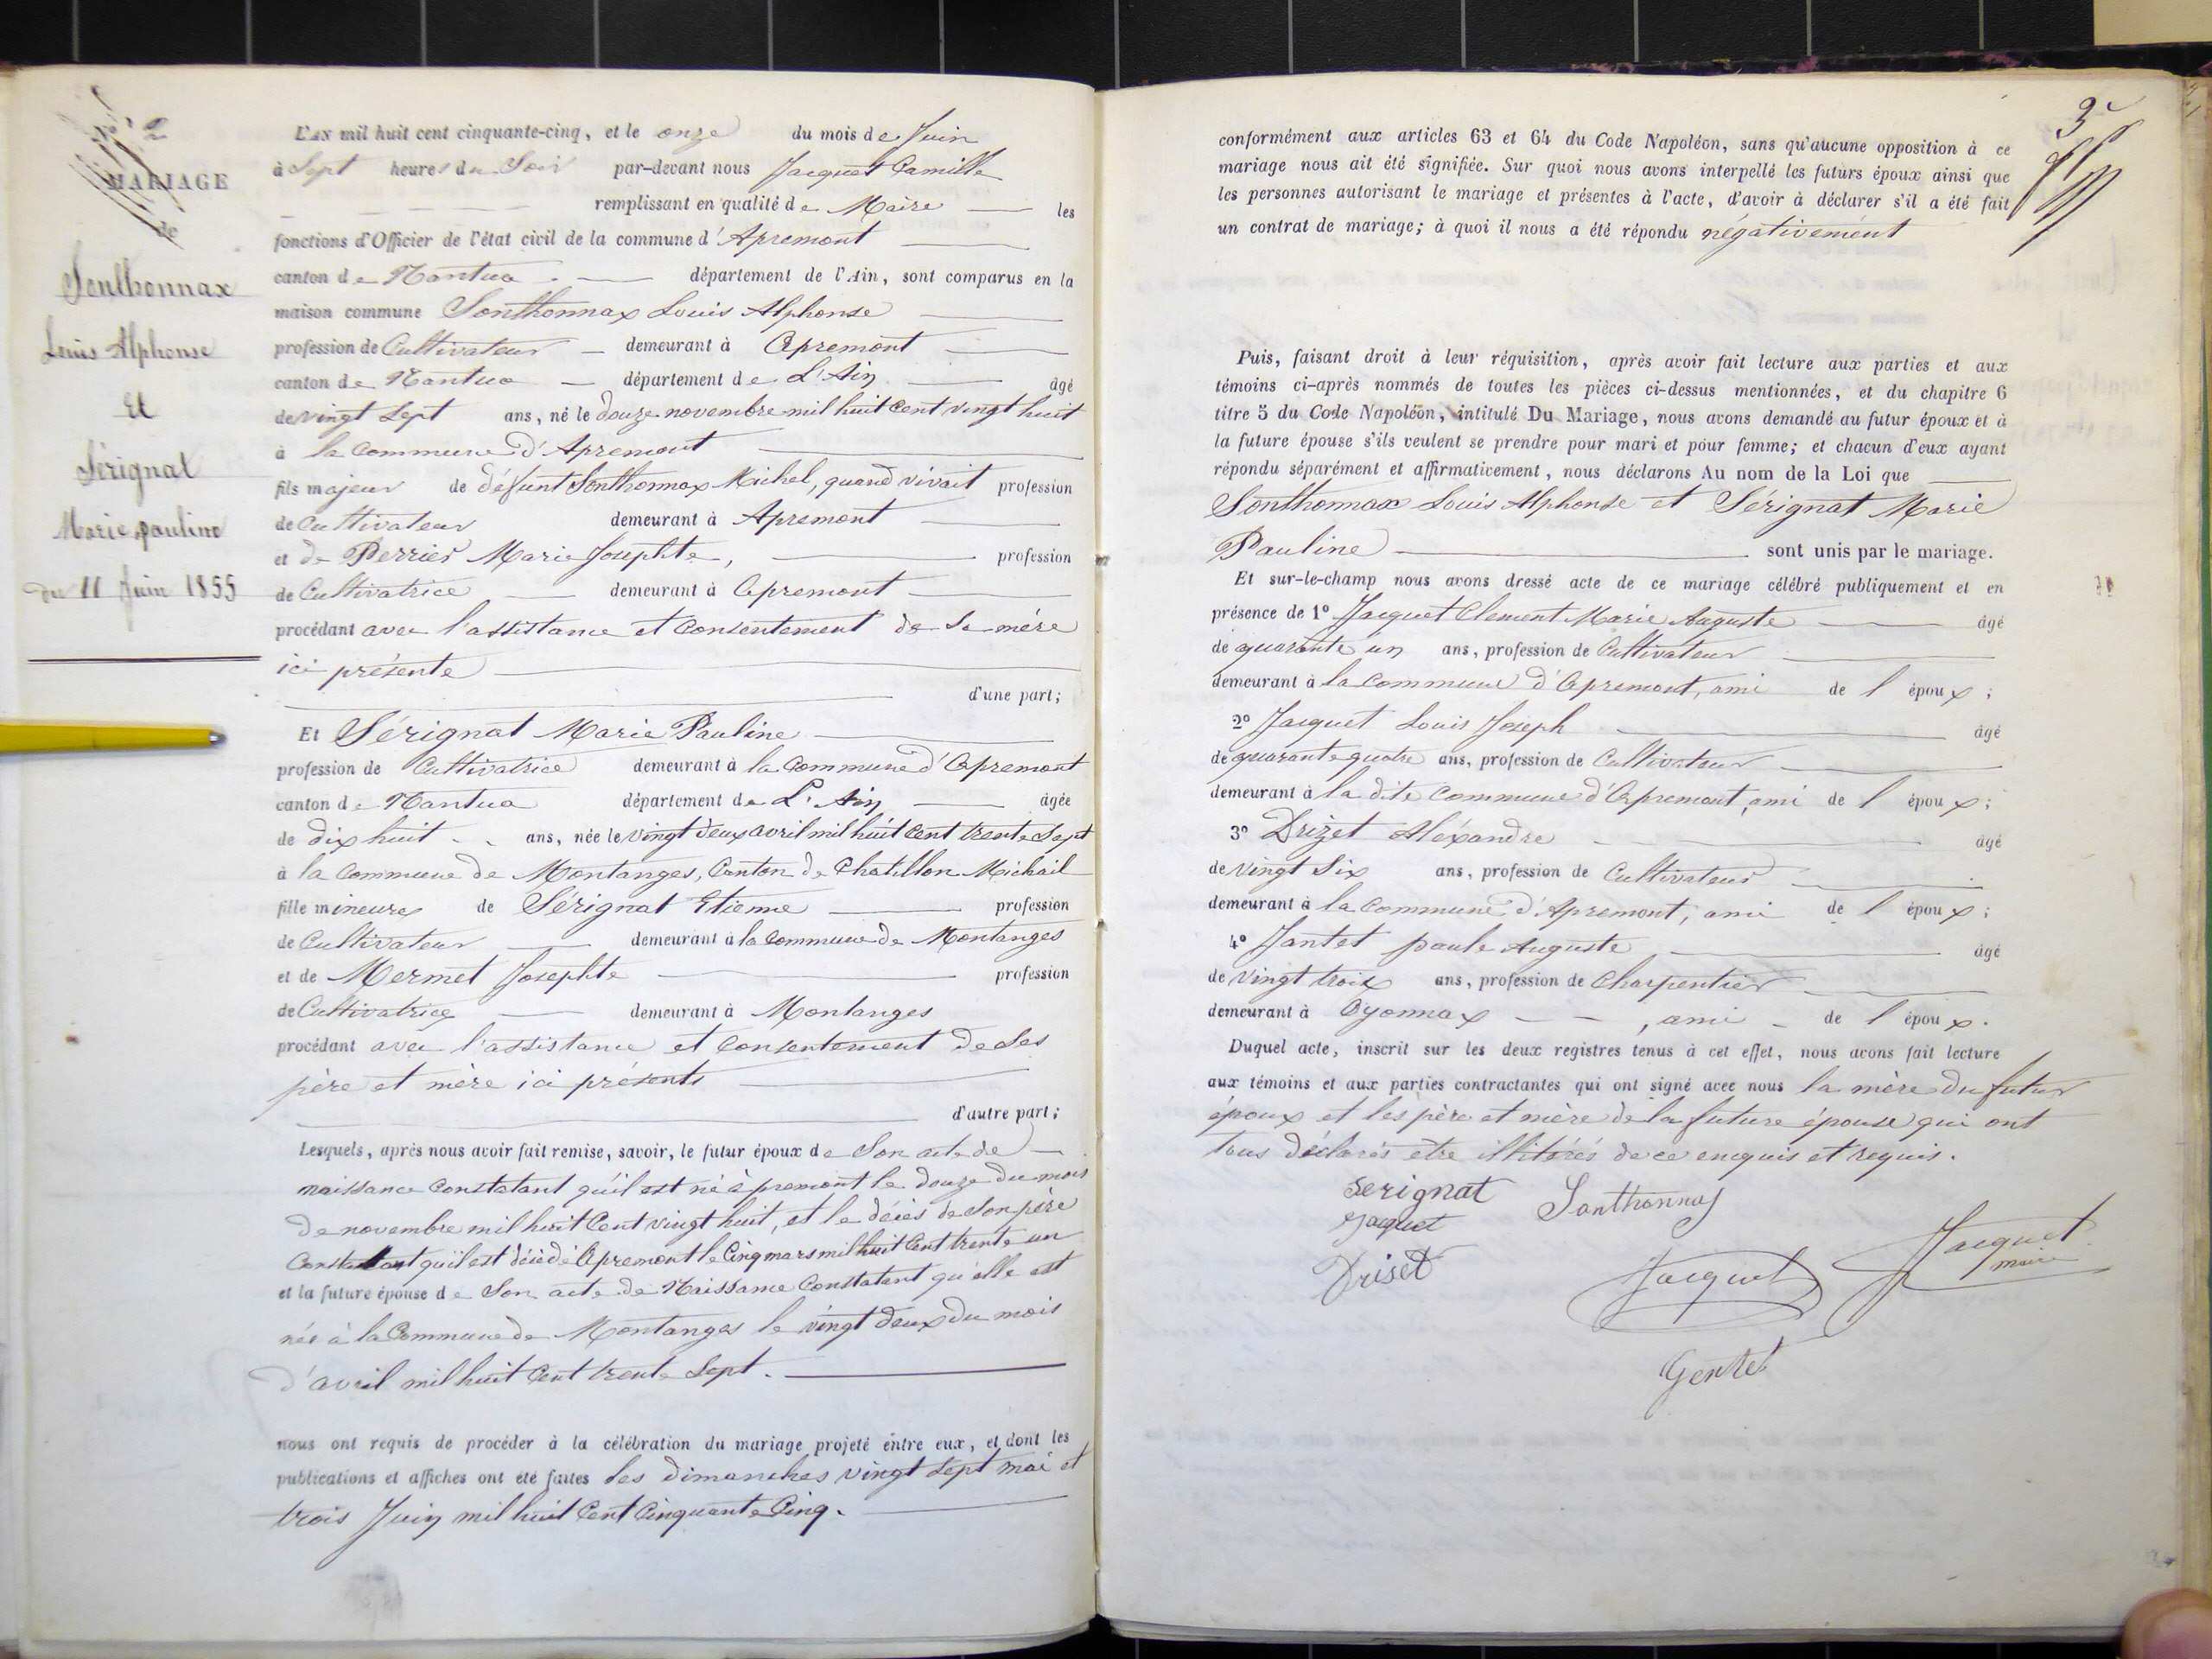 N° 2
MARIAGE
de
Sonthonnax
Louis Alphonse
Et
Sérignat
Marie pauline
du 11 Juin 1855
L'AN mil huit cent cinquante-cinq, et le onze du mois de Juin
à Sept heures du Soir par-devant nous Jacquet Camille
remplissant en qualité de Maire les
fonctions d'Officier de l'état civil de la commune d'Apremont
canton de Nantua département de l'Ain, sont comparus en la
maison commune Sonthonnax Louis Alphonse
profession de Cultivateur demeurant à Apremont
canton de Nantua département de L'Ain âgé
de vingt Sept ans, né le douze novembre mil huit Cent vingt huit
à la commune d'Apremont
fils majeur de défunt Sonthonnax Michel, quand vivait profession
de Cultivateur demeurant à Apremont
et de Perrier Marie Josephte, profession
de Cultivatrice demeurant à Apremont
procédant avec l'assistance et Consentement de Sa mère
ici présente
d'une part;
Et Sérignat Marie Pauline
profession de Cultivatrice demeurant à la Commune d'Apremont
canton de Nantua département de L'Ain âgée
de dix huit ans, née le vingt deux avril mil huit Cent trente Sept
à la Commune de Montanges, Canton de Chatillon Michail
fille mineure de Sérignat Etienne profession
de Cultivateur demeurant à la Commune de Montanges
et de Mermet Josephte profession
de Cultivatrice demeurant à Montanges
procédant avec l'assistance et Consentement de Ses
père et mère ici présents
d'autre part;
Lesquels, après nous avoir fait remise, savoir, le futur époux de Son acte de
naissance Constatant qu'il est né à premont le douze du mois
de novembre mil huit Cent vingt huit, et le décès de Son père
Constatant qu'il est décédé à Apremont le Cinq mars mil huit Cent trente un
et la future épouse de Son acte de Naissance Constatant qu'elle est
née à la Commune de Montanges le vingt deux du mois
d'avril mil huit Cent trente Sept.
nous ont requis de procéder à la célébration du mariage projeté entre eux, et dont les
publications et affiches ont été faites les dimanches vingt Sept mai et
trois Juin mil huit Cent Cinquante Cinq.
3
conformément aux articles 63 et 64 du Code Napoléon, sans qu'aucune opposition à ce
mariage nous ait été signifiée. Sur quoi nous avons interpellé les futurs époux ainsi que
les personnes autorisant le mariage et présentes à l'acte, d'avoir à déclarer s'il a été fait
un contrat de mariage; à quoi il nous a été répondu négativement
Puis, faisant droit à leur réquisition, après avoir fait lecture aux parties et aux
témoins ci-après nommés de toutes les pièces ci-dessus mentionnées, et du chapitre 6
titre 5 du Code Napoléon, intitulé Du Mariage, nous avons demandé au futur époux et à
la future épouse s'ils veulent se prendre pour mari et pour femme; et chacun d'eux ayant
répondu séparément et affirmativement, nous déclarons Au nom de la Loi que
Sonthonnax Louis Alphonse et Sérignat Marie
Pauline sont unis par le mariage.
Et sur-le-champ nous avons dressé acte de ce mariage célébré publiquement et en
présence de 1° Jacquet Clement Marie Auguste âgé
de quarante un ans, profession de Cultivateur
demeurant à la Commune d'Apremont, ami de l'époux;
2° Jacquet Louis Joseph âgé
de quarante quatre ans, profession de Cultivateur
demeurant à la dite Commune d'Apremont, ami de l'époux;
3° Drizet Aléxandre âgé
de vingt Six ans, profession de Cultivateur
demeurant à la Commune d'Apremont, ami de l'époux;
4° Jantet paule Auguste âgé
de vingt trois ans, profession de Charpentier
demeurant à Oyonnax, ami de l'époux.
Duquel acte, inscrit sur les deux registres tenus à cet effet, nous avons fait lecture
aux témoins et aux parties contractantes qui ont signé avec nous la mère du futur
époux et les père et mère de la future épouse qui ont
tous déclarés être illitérés de ce enquis et requis.
Serignat Sonthonnax
Jaquet
Driset Jacquet Jacquet
maire
Gentet